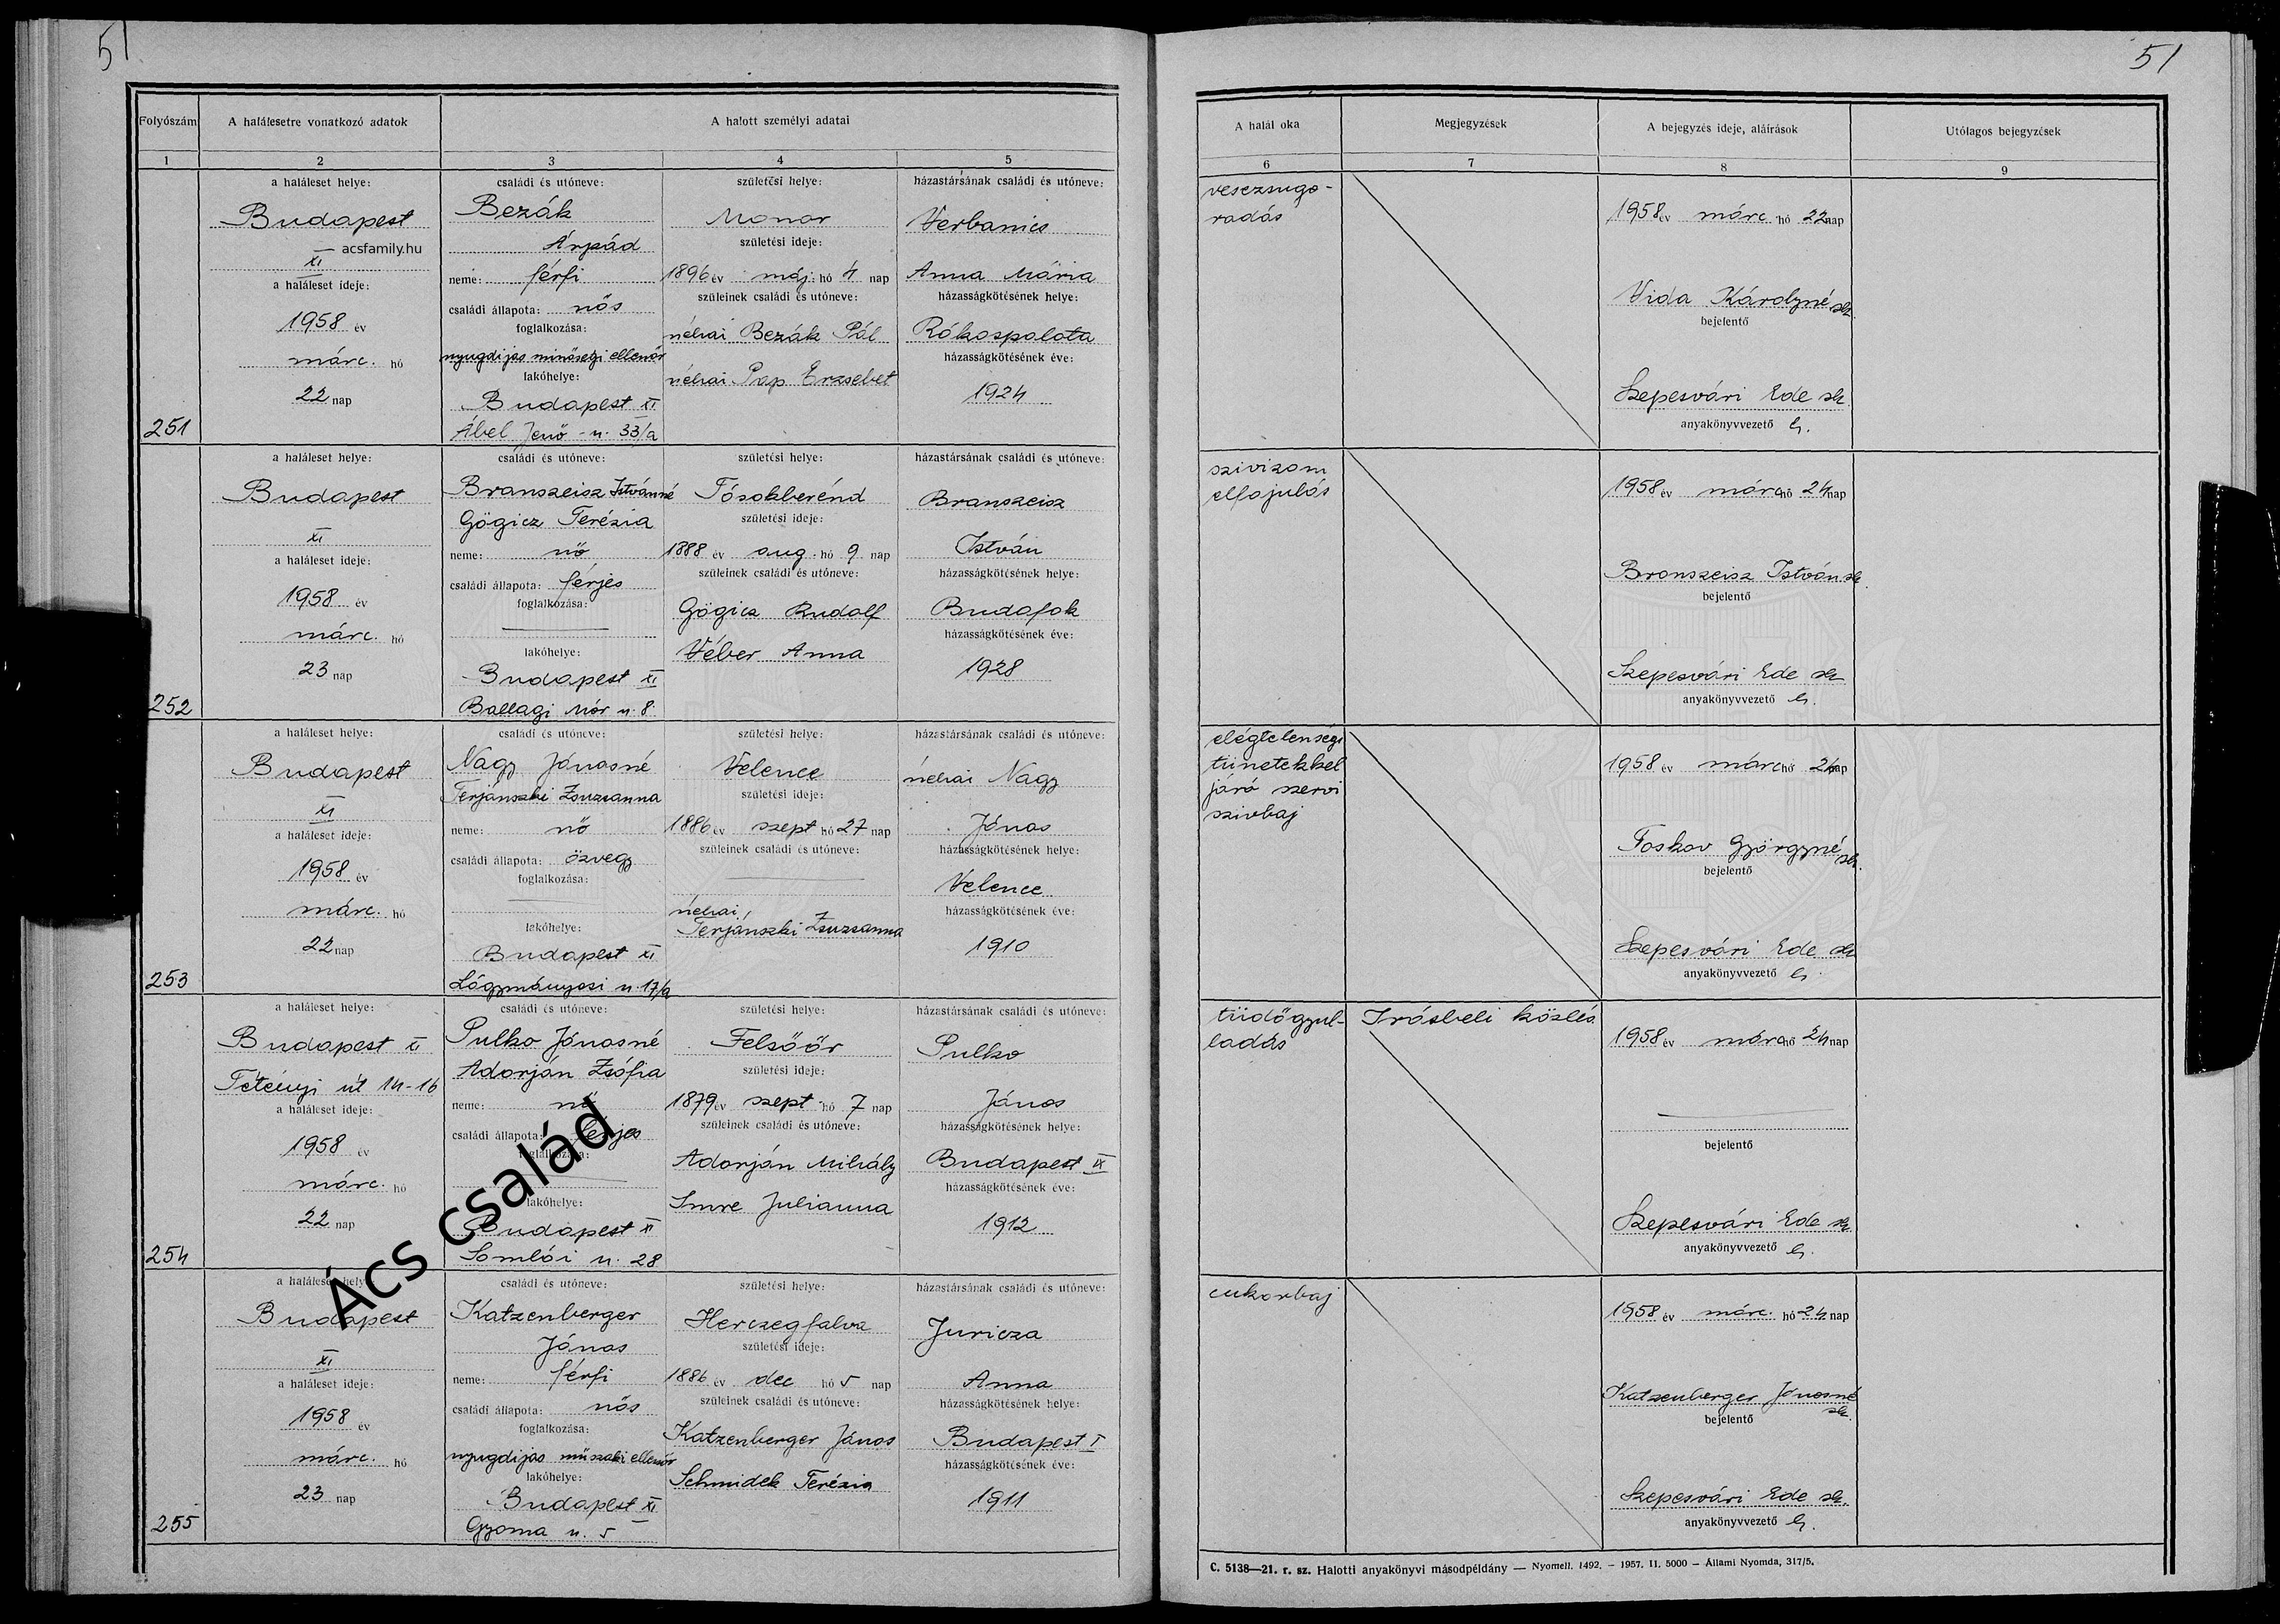 51
51
Folyószám
A halálesetre vonatkozó adatok
A halott személyi adatai
1
2
3
4
5
a haláleset helye:
Budapest
XI
acsfamily.hu
a haláleset ideje:
1958 év
márc. hó
22 nap
251
családi és utóneve:
Bezák
Árpád
neme: férfi
családi állapota: nős
foglalkozása:
nyugdijas minőségi ellenőr
lakóhelye:
Budapest XI
Ábel Jenő - u. 33/a
születési helye:
Monor
születési ideje:
1896 év máj. hó 4 nap
szüleinek családi és utóneve:
néhai Bezák Pál
néhai Pap Erzsebet
házastársának családi és utóneve:
Verbanics
Anna Mária
házasságkötésének helye:
Rákospalota
házasságkötésének éve:
1924
a haláleset helye:
Budapest
XI
a haláleset ideje:
1958 év
márc. hó
23 nap
252
családi és utóneve:
Branszeisz Istvánné
Gögicz Terézia
neme: nő
családi állapota: férjes
foglalkozása:
lakóhelye:
Budapest XI
Ballagi Mór u. 8
születési helye:
Tósokberénd
születési ideje:
1888 év aug. hó 9 nap
szüleinek családi és utóneve:
Gögicz Rudolf
Véber Anna
házastársának családi és utóneve:
Branszeisz
István
házasságkötésének helye:
Budafok
házasságkötésének éve:
1928
a haláleset helye:
Budapest
XI
a haláleset ideje:
1958 év
márc. hó
22 nap
253
családi és utóneve:
Nagy Jánosné
Terjánszki Zsuzsanna
neme: nő
családi állapota: özvegy
foglalkozása:
lakóhelye:
Budapest XI
Lágymányosi u. 17/a
születési helye:
Velence
születési ideje:
1886 év szept hó 27 nap
szüleinek családi és utóneve:
néhai
Terjánszki Zsuzsanna
házastársának családi és utóneve:
néhai Nagy
János
házasságkötésének helye:
Velence
házasságkötésének éve:
1910
a haláleset helye:
Budapest XI
Tétényi út 14-16
a haláleset ideje:
1958 év
márc. hó
22 nap
254
családi és utóneve:
Pulko Jánosné
Adorján Zsófia
neme: nő
családi állapota: férjes
foglalkozása:
lakóhelye:
Budapest XI
Somlói u. 28
születési helye:
Felsőőr
születési ideje:
1879 év szept. hó 7 nap
szüleinek családi és utóneve:
Adorján Mihály
Imre Julianna
házastársának családi és utóneve:
Pulko
János
házasságkötésének helye:
Budapest IX
házasságkötésének éve:
1912
Ács család
a haláleset helye:
Budapest
XI
a haláleset ideje:
1958 év
márc. hó
23 nap
255
családi és utóneve:
Katzenberger
János
neme: férfi
családi állapota: nős
foglalkozása:
nyugdijas műszaki ellenőr
lakóhelye:
Budapest XI
Gyoma u. 5
születési helye:
Herczegfalva
születési ideje:
1886 év dec hó 5 nap
szüleinek családi és utóneve:
Katzenberger János
Schmidek Terézia
házastársának családi és utóneve:
Juricza
Anna
házasságkötésének helye:
Budapest I
házasságkötésének éve:
1911
A halál oka
Megjegyzések
A bejegyzés ideje, aláírások
Utólagos bejegyzések
6
7
8
9
vesezsugo-
rodás
1958 év márc hó 22 nap
Vida Károlyné sk.
bejelentő
Szepesvári Ede sk
anyakönyvvezető h.
szivizom
elfajulás
1958 év márc hó 24 nap
Branszeisz István sk.
bejelentő
Szepesvári Ede sk
anyakönyvvezető h.
elégtelenségi
tünetekkel
járó szervi
szivbaj
1958 év márc hó 24 nap
Foskov Györgyné sk.
bejelentő
Szepesvári Ede sk
anyakönyvvezető h.
tüdőgyul-
ladás
Irásbeli közlés
1958 év márc hó 24 nap
bejelentő
Szepesvári Ede sk.
anyakönyvvezető h.
cukorbaj
1958 év márc. hó 24 nap
Katzenberger Jánosné
sk.
bejelentő
Szepesvári Ede sk.
anyakönyvvezető h.
C. 5138—21. r. sz. Halotti anyakönyvi másodpéldány — Nyomell. 1492. – 1957. II. 5000 – Állami Nyomda, 317/5.